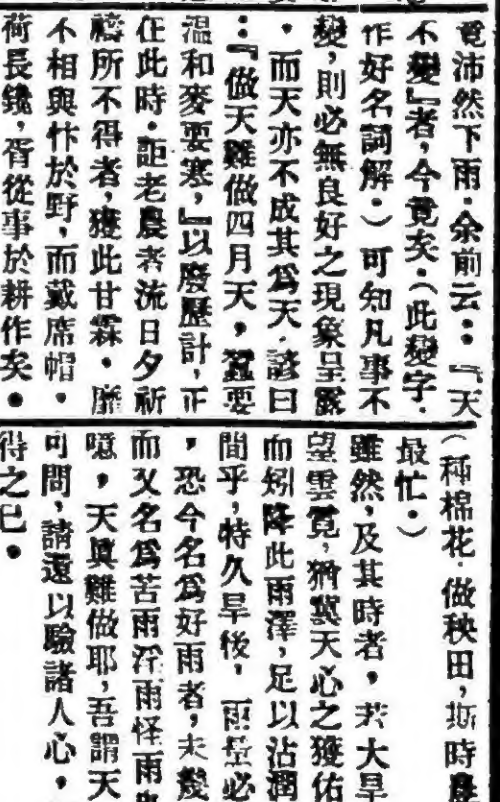 竟沛然下雨·余前云：『天
不變』者，今竟矣·（此變字·
作好名詞解·）可知凡事不
變，則必無良好之現象呈露
·而天亦不成其爲天·諺曰
：『做天難做四月天，蠶要
溫和麥要寒，』以廢歷計，正
在此時·詎老農者流日夕祈
禱所不得者，獲此甘霖·靡
不相與忭於野，而戴席帽·
荷長鑱，胥從事於耕作矣●
（種棉花·做秧田，斯時農
最忙·）
雖然，及其時者，若大旱
望雲霓，猶冀天心之獲佑
而矧降此雨澤，足以沾潤
間乎，特久旱後，雨量必
，恐今名爲好雨者，未幾
而又名爲苦雨淫雨怪雨
噫，天眞難做耶，吾謂天
可問，請還以驗諸人心，
得之已●